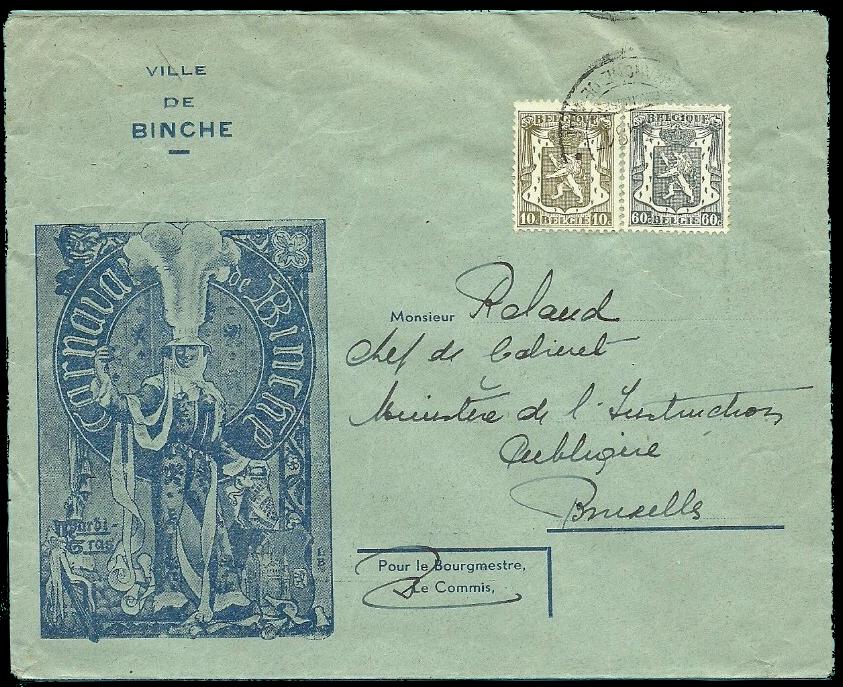 VILLE
DE
BINCHE
BELGIQUE BELGIQUE
10c BELGIË 10c 60c BELGIË 60c
Carnaval de Binche
Mardi-
Gras
L B
Monsieur Roland
Chef de Cabinet
Ministère de l'Instruction
Publique
Bruxelles
Pour le Bourgmestre,
Le Commis,